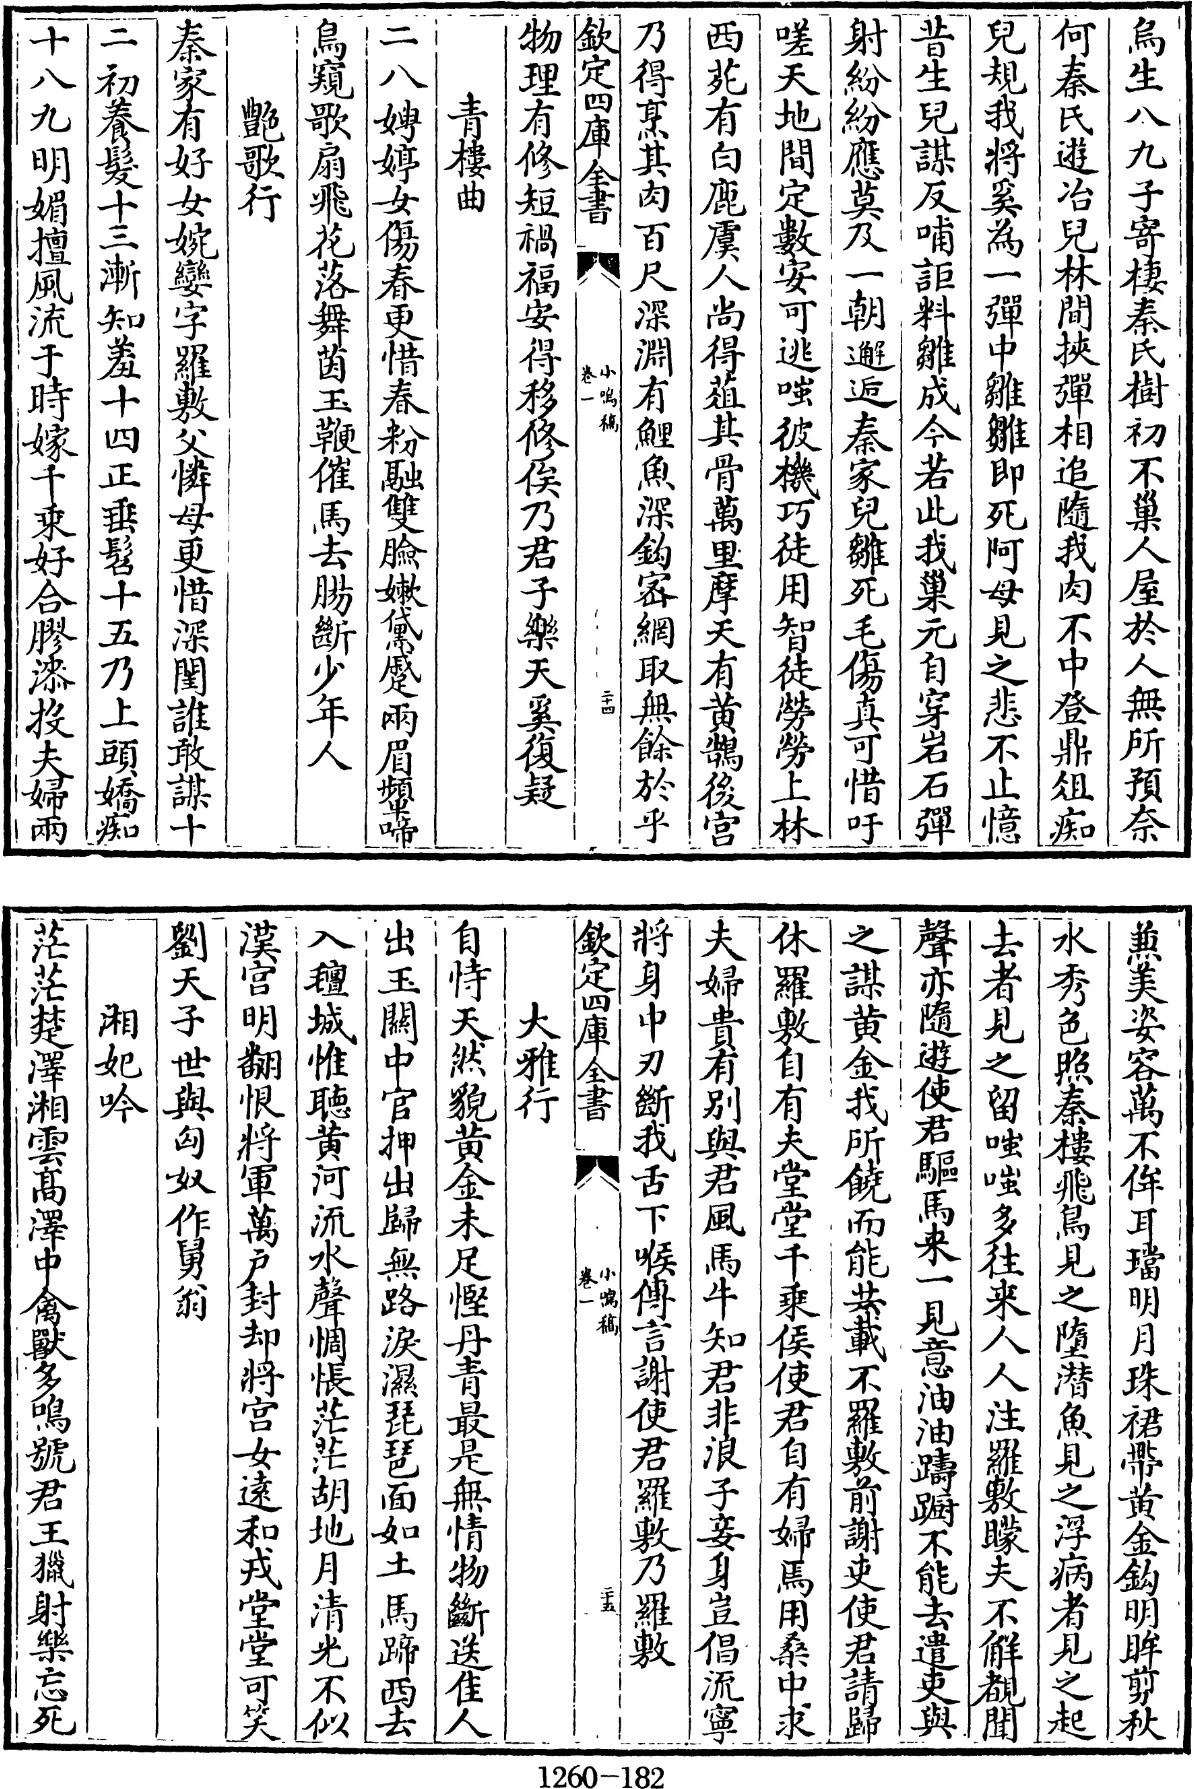 烏生八九子寄棲秦氏樹初不巢人屋於人無所預奈
何秦氏遊冶兒林間挾彈相追隨我肉不中登鼎俎痴
兒規我將奚為一彈中雛雛即死阿母見之悲不止憶
昔生兒謀反哺詎料雛成今若此我巢元自穿岩石彈
射紛紛應莫及一朝邂逅秦家兒雛死毛傷真可惜吁
嗟天地間定數安可逃嗤彼機巧徒用智徒勞勞上林
西苑有白鹿虞人尚得葅其骨萬里摩天有黄鵠後宫
乃得烹其肉百尺深淵有鯉魚深鈎宻網取無餘於乎
欽定四庫全書
小鳴稿
卷一
二十四
物理有修短禍福安得移修俟乃君子樂天奚復疑
青樓曲
二八娉婷女傷春更惜春粉融雙臉嫩黛蹙兩眉顰啼
鳥窺歌扇飛花落舞茵玉鞭催馬去腸斷少年人
艷歌行
秦家有好女婉孌字羅敷父憐母更惜深閨誰敢謀十
二初養髮十三漸知羞十四正垂髫十五乃上頭嬌痴
十八九明媚擅風流于時嫁千乘好合膠漆投夫婦兩
兼美姿容萬不侔耳璫明月珠裙帶黄金鈎明眸剪秋
水秀色照秦樓飛鳥見之墮潛魚見之浮病者見之起
去者見之留嗤嗤多往來人人注羅敷矇夫不解覩聞
聲亦隨遊使君驅馬来一見意油油躊蹰不能去遣吏與
之謀黄金我所饒而能共載不羅敷前謝吏使君請歸
休羅敷自有夫堂堂千乘侯使君自有婦焉用桑中求
夫婦貴有别與君風馬牛知君非浪子妾身豈倡流寧
將身中刃斷我舌下喉傳言謝使君羅敷乃羅敷
欽定四庫全書
小鳴稿
卷一
二十五
大雅行
自恃天然貌黄金未足慳丹青最是無情物斷送佳人
出玉關中官押出歸無路淚濕琵琶面如土馬蹄西去
入氊城惟聽黄河流水聲惆悵茫茫胡地月清光不似
漢宫明翻恨將軍萬户封却將宫女遠和戎堂堂可笑
劉天子世與匈奴作舅翁
湘妃吟
茫茫楚澤湘雲髙澤中禽獸多鳴號君王獵射樂忘死
1260-182